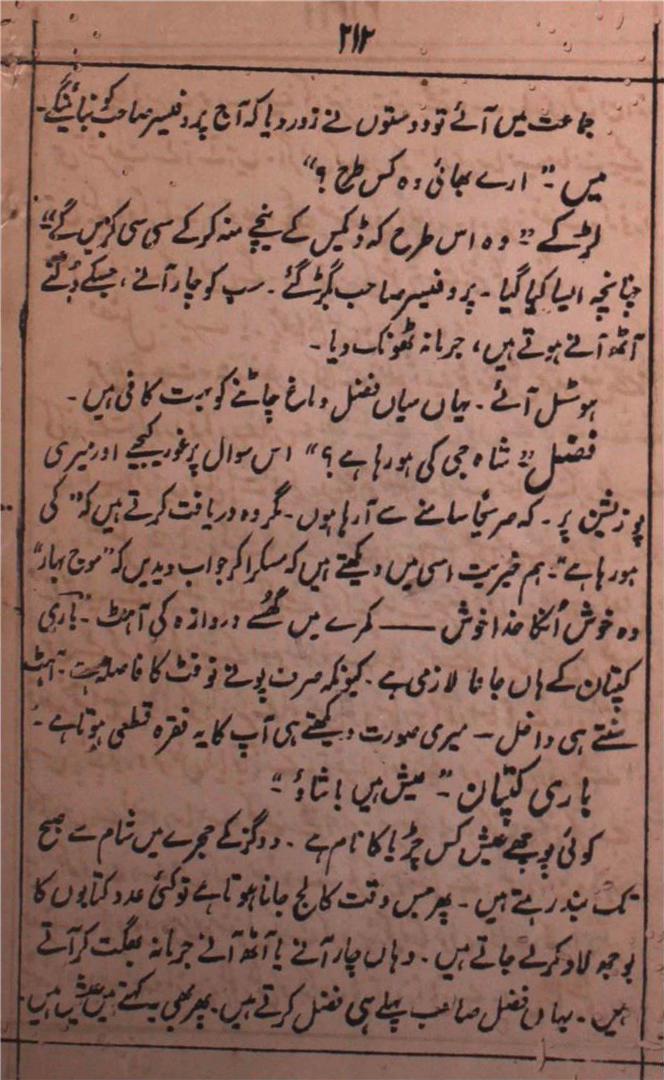 ۲۱۲
جماعت میں آئے تو دوستوں نے زور دیا کہ آج پروفیسر صاحب کو بنائینگے۔
میں۔" ارے بھائی وہ کس طرح ؟"
لڑکے " وہ اس طرح کہ ڈیکس کے نیچے منہ کر کے سی سی کریں گے"
چنانچہ ایسا کیا گیا۔ پروفیسر صاحب بگڑ گئے۔ سب کو چار آنے ، جسکے دُگنے
آٹھ آنے ہوتے ہیں، جرمانہ ٹھونک دیا۔
ہوسٹل آئے۔ یہاں میاں فضل دماغ چاٹنے کو بہت کافی ہیں۔
فضل " شاہ جی کی ہو رہا ہے ؟" اس سوال پر غور کیجیے اور میری
پوزیشن پر۔ کہ صریحاً سامنے سے آرہا ہوں۔ مگر وہ دریافت کرتے ہیں کہ " کی
ہو رہا ہے"۔ ہم خیریت اسی میں دیکھتے ہیں کہ مسکرا کر جواب دیدیں کہ "موج بہار"
وہ خوش اُنکا خدا خوش —— کمرے میں گھُسے دروازہ کی آہٹ۔ باری
کپتان کے ہاں جانا لازمی ہے۔ کیونکہ صرف پونے نو فٹ کا فاصلہ ہے۔ آہٹ
سنتے ہی داخل — میری صورت دیکھتے ہی آپ کا یہ فقرہ قطعی ہوتا ہے۔
باری کپتان۔" عیش ہیں بادشاؤ"۔
کوئی پوچھے عیش کس چڑیا کا نام ہے۔ دو گز کے حجرے میں شام سے صبح
تک بند رہتے ہیں۔ پھر جس وقت کالج جانا ہوتا ہے تو کئی عدد کتابوں کا
بوجھ لاد کر لے جاتے ہیں۔ وہاں چار آنے یا آٹھ آنے جرمانہ بھگت کر آتے
ہیں۔ یہاں فضل صاحب پہلے ہی فضل کرتے ہیں۔ پھر بھی یہ کہتے ہیں عیش ہیں۔